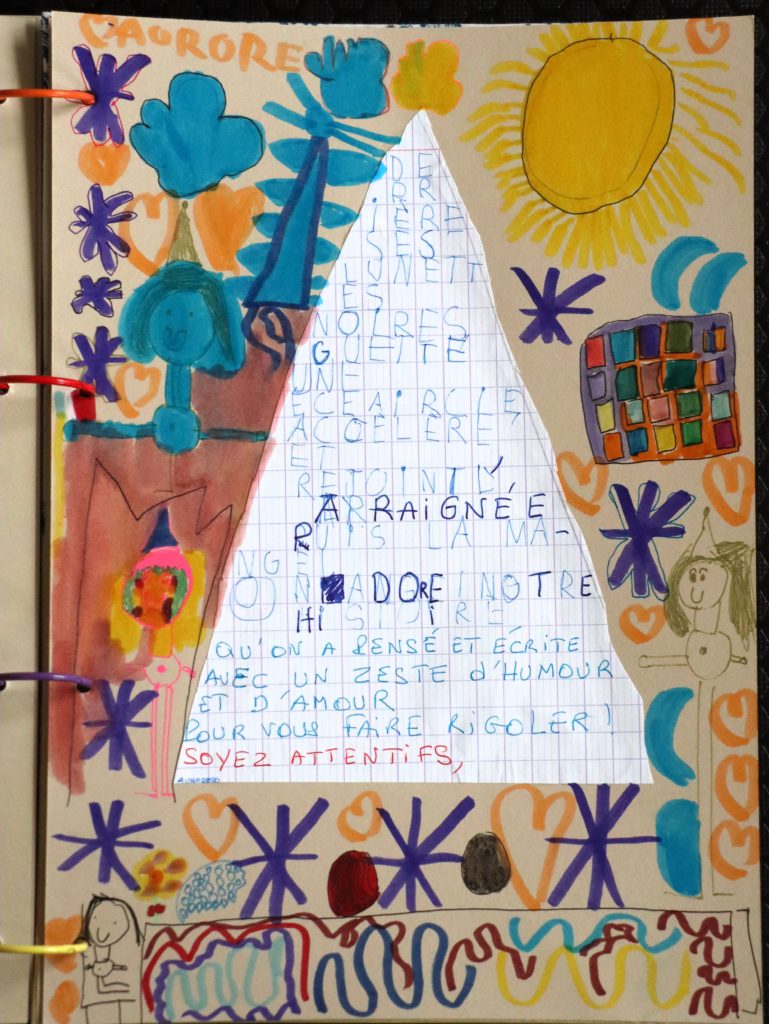 AURORE
DE
RR
IERE
SES
LUNETT
ES
NOIRES,
GUETTE
UNE
ECLAIRCIE,
ACCÉLÈRE
ET
REJOINT L'
ARRAIGNÉE
PUIS LA MA-
ADORE NOTRE
HISTOIRE
QU'ON A PENSÉ ET ÉCRITE
AVEC UN ZESTE d'HUMOUR
ET D'AMOUR
POUR VOUS FAIRE RIGOLER !
SOYEZ ATTENTIFS,